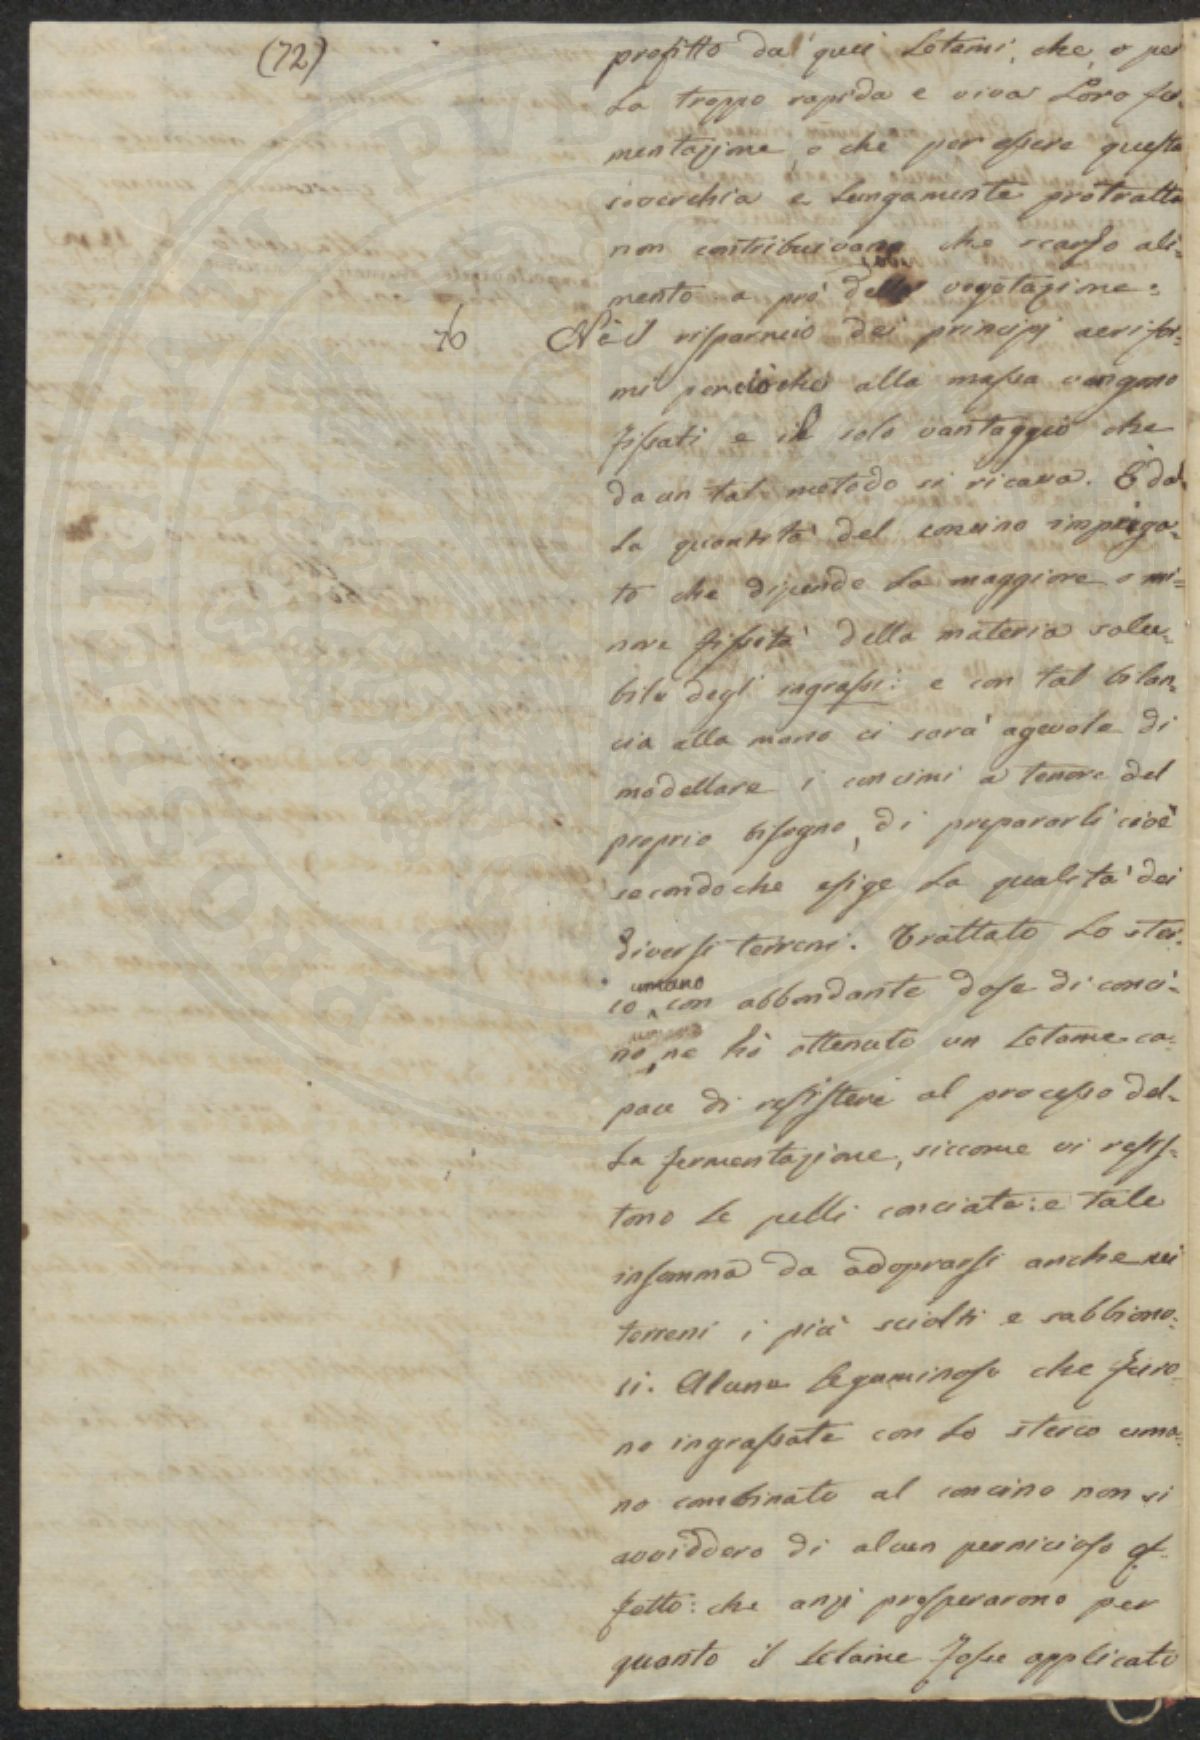 (72)
profitto da' quei Letami, che, o per
La troppo rapida e viva Loro fer-
mentazione, o che per essere questa
soverchia e Lungamente protratta
non contribuivano che scarso ali-
mento a prò della vegetazione:
76 Nè il risparmio dei principj aerifor-
mi perciòche alla massa vengono
fissati e il solo vantaggio che
da un tal metodo si ricava. È dal-
La quantità del concino impiega-
to che dipende La maggiore o mi-
nore fissità della materia solu-
bile degl' ingrassi: e con tal bilan-
cia alla mano ci sarà agevole di
modellare i concimi a tenore del
proprio bisogno, di prepararli cioè
secondoche esige La qualità dei
diversi terreni. Trattato Lo ster-
umano
co con abbondante dose di conci-
no, ne hò ottenuto un Letame ca-
pace di resistere al processo del-
La fermentazione, siccome vi resis-
tono Le pelli conciate: e tale
insomma da adoprarsi anche nei
terreni i più sciolti e sabbiono-
si. Alcune Leguminose che furo-
no ingrassate con Lo sterco uma-
no combinato al concino non si
avviddero di alcun pernicioso ef-
fetto: che anzi prosperarono per
quanto il Letame fosse applicato